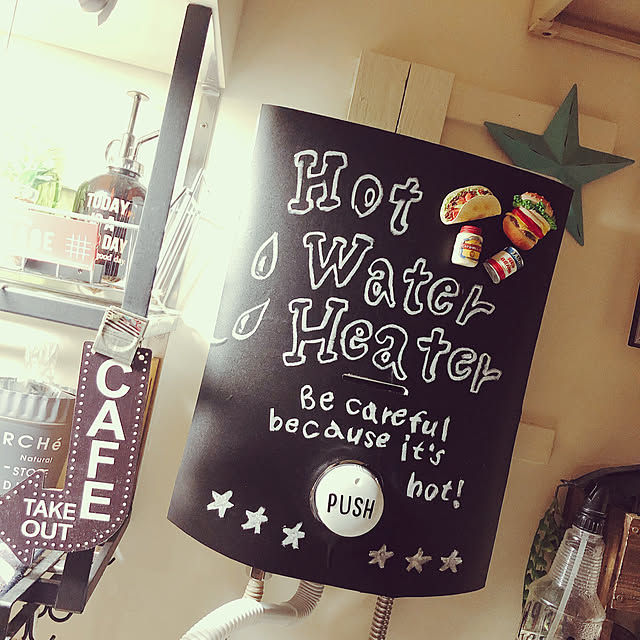 Hot
Water
Heater
Be careful
because it's
hot!
PUSH
TODAY
DAY
good day
CAFE
TAKE
OUT
RCHé
Natural